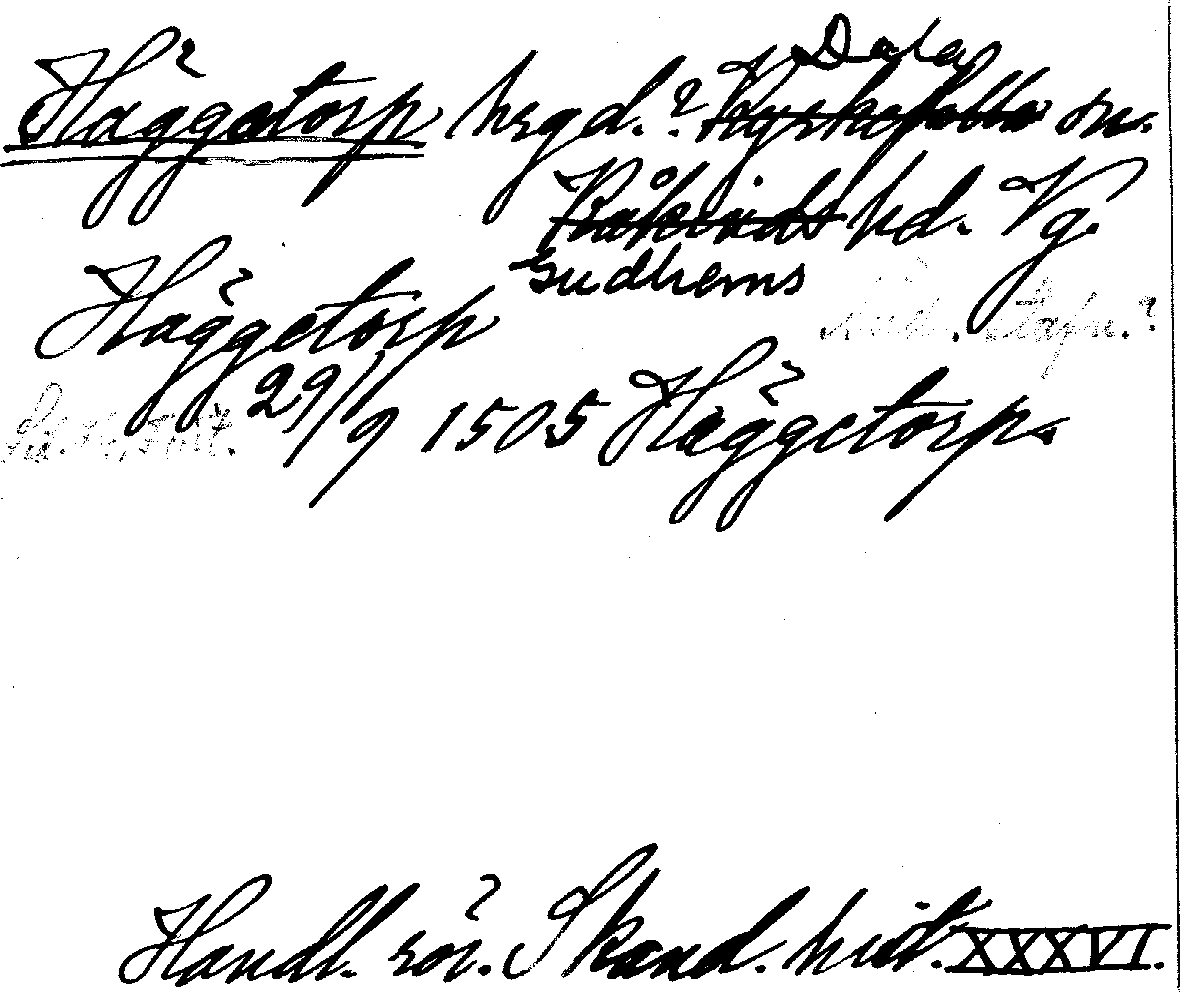 Dala
Häggetorp hrgd.? Kyrkefalla sn.
Kåkinds hd. Vg.
Gudhems
Häggetorp
Und. Stafn.?
29/9 1505 Häggetorp.
Handl. rör. Skand. hist. XXXVI.